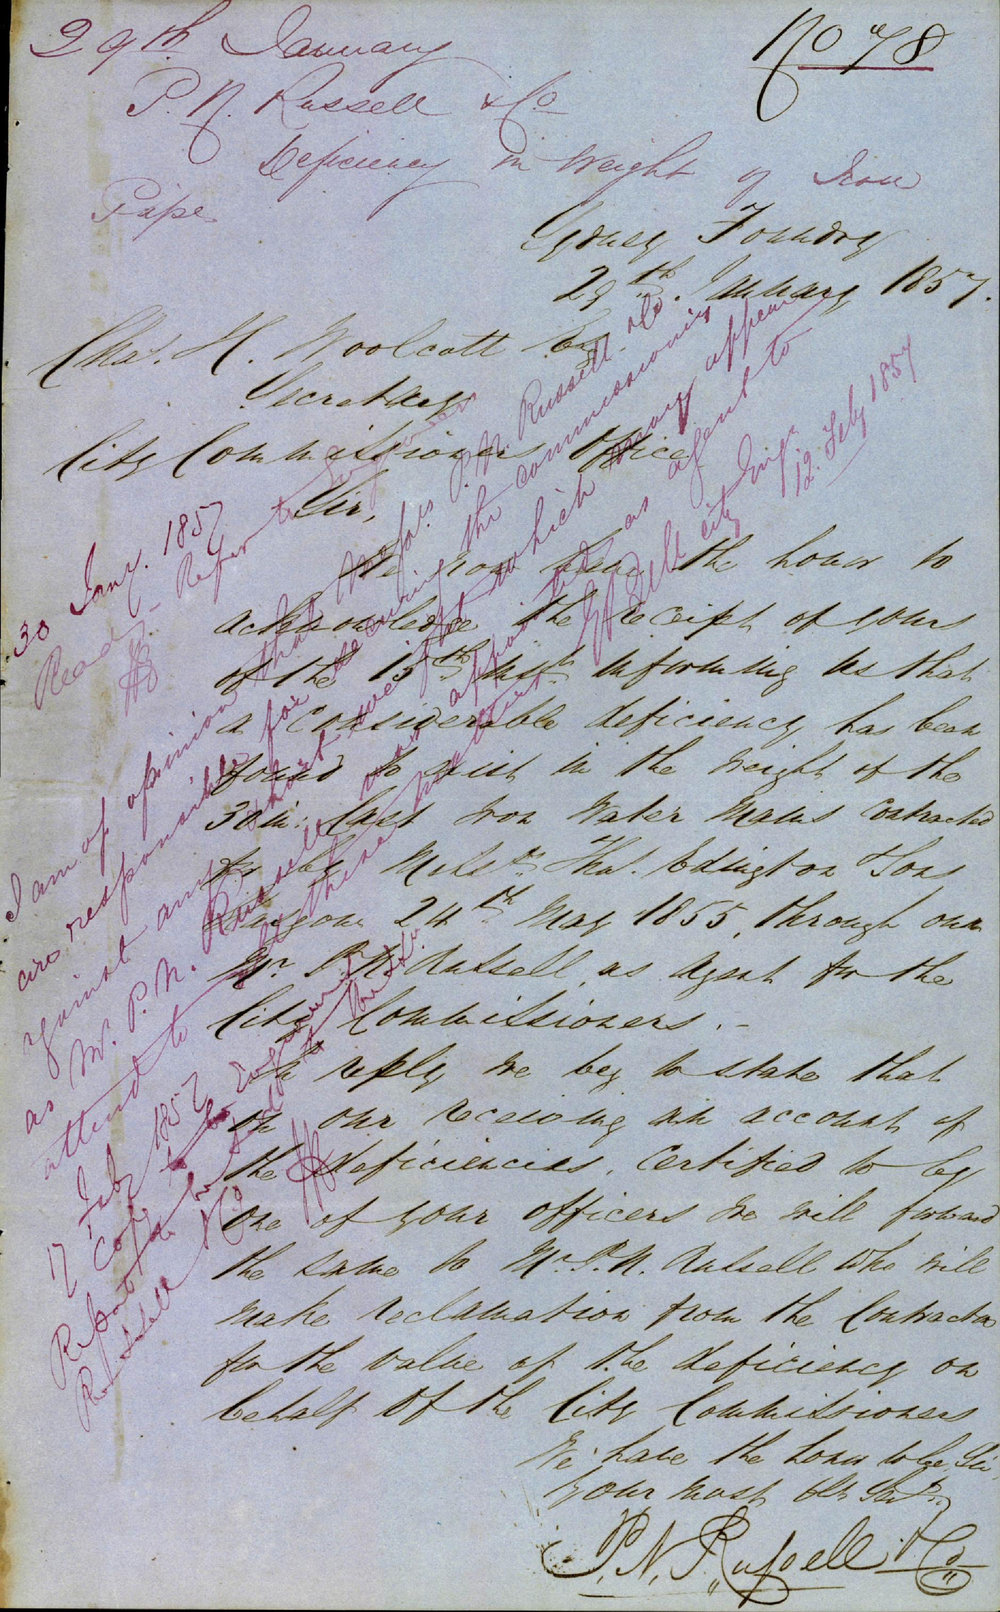 No 78
29th January
P. N. Russell & Co
Deficiency in Weight of Iron
Pipe
Sydney Foundry
29th. January 1857.
Chas. H. Woolcott Esq
Secretary
City Commissioners Office
Sir,
We now have the honor to
acknowledge the receipt of yours
of the 15th inst informing us that
a Considerable deficiency has been
found to exist in the weight of the
30 in: Cast Iron Water Mains Contracted
for by Messrs. Thos. Edington & Sons
Glasgow 24th May 1855, through our
Mr. P. N. Russell as Agent for the
City Commissioners. -
In reply we beg to state that
on our receiving an account of
the deficiencies Certified to by
one of your officers we will forward
the same to Mr. P. N. Russell who will
make reclamation from the Contractor
for the value of the deficiency on
behalf of the City Commissioners
We have the honor to be Sir
Your most obt Servts
P. N. Russell & Co
30 Jany. 1857
Read - Refer to Engineer
I am of opinion that Messrs P. N. Russell & Co
are responsible for securing the commissioners
against any short weight which may appear
as Mr. P. N. Russell was appointed as agent to
attend to these matters
City Engr
12. Feby 1857
17 Feby 1857
Copy to Engineer's
Report to be sent to Messrs.
Russell & Co